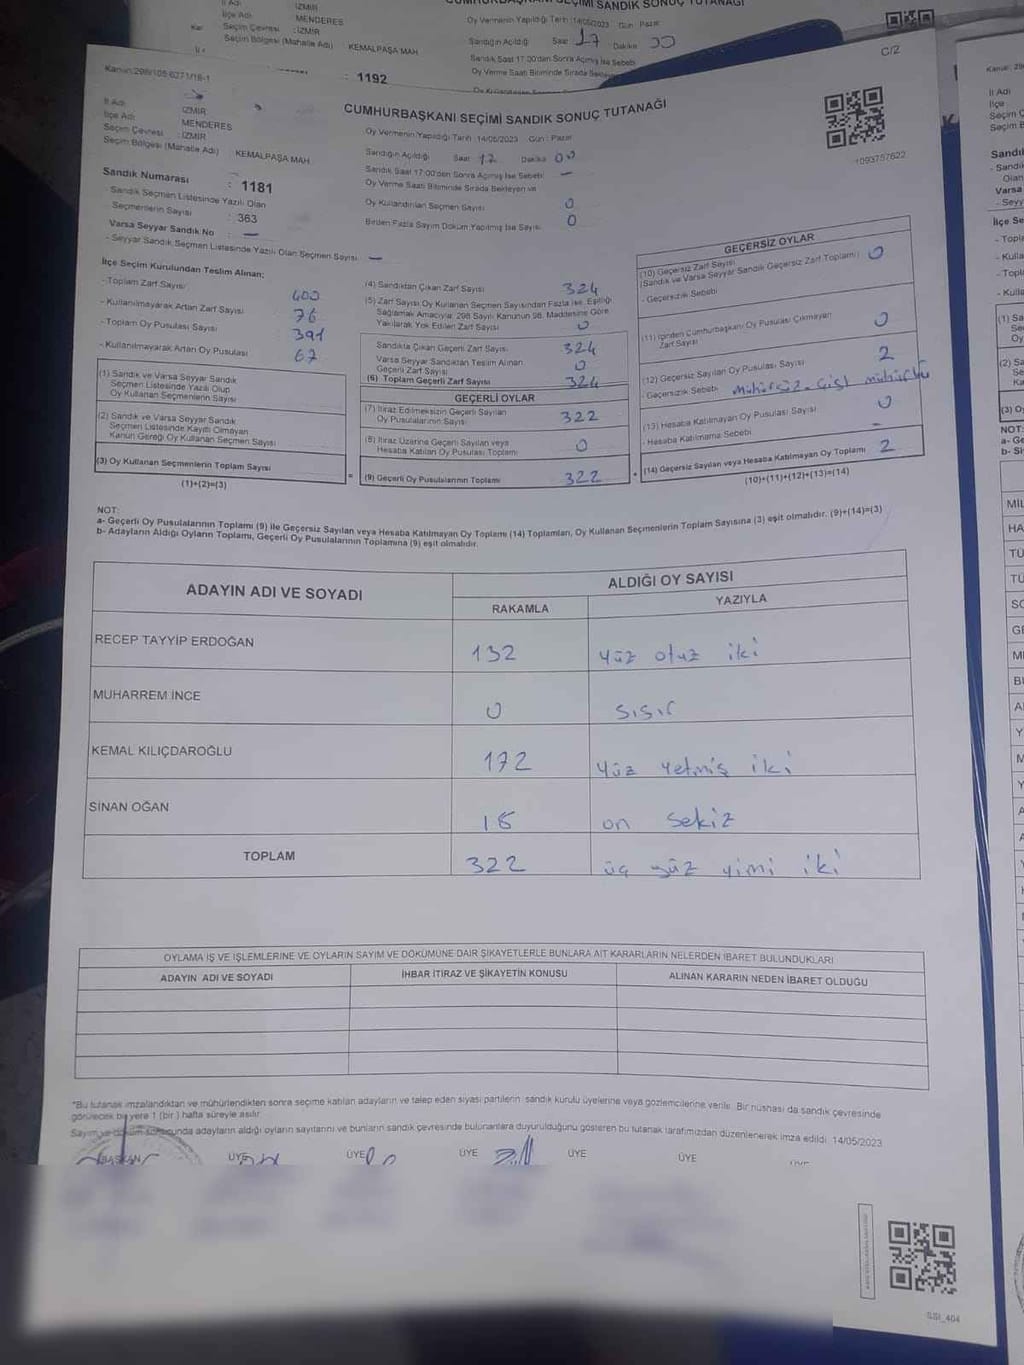 İZMİR
İlçe Adı MENDERES
Seçim Çevresi : İZMİR
Seçim Bölgesi (Mahalle Adı) KEMALPAŞA MAH
1192
Oy Vermenin Yapıldığı Tarih :14/05/2023 Gün : Pazar
Sandığın Açıldığı Saat 17 Dakika 00
Sandık Saat 17:00'den Sonra Açılmış İse Sebebi
C/2
Kanun:298/105 6271/18-1
İl Adı : İZMİR
İlçe Adı : MENDERES
Seçim Çevresi : İZMİR
Seçim Bölgesi (Mahalle Adı) : KEMALPAŞA MAH.
Sandık Numarası : 1181
- Sandık Seçmen Listesinde Yazılı Olan
Seçmenlerin Sayısı : 363
Varsa Seyyar Sandık No : —
- Seyyar Sandık Seçmen Listesinde Yazılı Olan Seçmen Sayısı : —
CUMHURBAŞKANI SEÇİMİ SANDIK SONUÇ TUTANAĞI
Oy Vermenin Yapıldığı Tarih :14/05/2023 Gün : Pazar
Sandığın Açıldığı Saat 17 Dakika 00
Sandık Saat 17:00'den Sonra Açılmış İse Sebebi : —
Oy Verme Saati Bitiminde Sırada Bekleyen ve
Oy Kullandırılan Seçmen Sayısı 0
Birden Fazla Sayım Döküm Yapılmış İse Sayısı 0
1093757622
İlçe Seçim Kurulundan Teslim Alınan;
- Toplam Zarf Sayısı 400
- Kullanılmayarak Artan Zarf Sayısı 76
- Toplam Oy Pusulası Sayısı 391
- Kullanılmayarak Artan Oy Pusulası 67
(1) Sandık ve Varsa Seyyar Sandık
Seçmen Listesinde Yazılı Olup
Oy Kullanan Seçmenlerin Sayısı
(2) Sandık ve Varsa Seyyar Sandık
Seçmen Listesinde Kayıtlı Olmayan
Kanun Gereği Oy Kullanan Seçmen Sayısı
(3) Oy Kullanan Seçmenlerin Toplam Sayısı
(1)+(2)=(3)
(4) Sandıktan Çıkan Zarf Sayısı 324
(5) Zarf Sayısı Oy Kullanan Seçmen Sayısından Fazla ise, Eşitliği
Sağlamak Amacıyla; 298 Sayılı Kanunun 98. Maddesine Göre
Yakılarak Yok Edilen Zarf Sayısı 0
Sandıkta Çıkan Geçerli Zarf Sayısı 324
Varsa Seyyar Sandıktan Teslim Alınan
Geçerli Zarf Sayısı 0
(6) Toplam Geçerli Zarf Sayısı 324
GEÇERLİ OYLAR
(7) İtiraz Edilmeksizin Geçerli Sayılan
Oy Pusulasının Sayısı 322
(8) İtiraz Üzerine Geçerli Sayılan veya
Hesaba Katılan Oy Pusulası Toplamı 0
(9) Geçerli Oy Pusulalarının Toplamı 322
GEÇERSİZ OYLAR
(10) Geçersiz Zarf Sayısı
(Sandık ve Varsa Seyyar Sandık Geçersiz Zarf Toplamı) 0
- Geçersizlik Sebebi
(11) İçinden Cumhurbaşkanı Oy Pusulası Çıkmayan
Zarf Sayısı 0
(12) Geçersiz Sayılan Oy Pusulası Sayısı 2
- Geçersizlik Sebebi
(13) Hesaba Katılmayan Oy Pusulası Sayısı 0
- Hesaba Katılmama Sebebi -
(14) Geçersiz Sayılan veya Hesaba Katılmayan Oy Toplamı 2
(10)+(11)+(12)+(13)=(14)
NOT:
a- Geçerli Oy Pusulalarının Toplamı (9) ile Geçersiz Sayılan veya Hesaba Katılmayan Oy Toplamı (14) Toplamları, Oy Kullanan Seçmenlerin Toplam Sayısına (3) eşit olmalıdır. (9)+(14)=(3)
b- Adayların Aldığı Oyların Toplamı, Geçerli Oy Pusulalarının Toplamına (9) eşit olmalıdır.
ADAYIN ADI VE SOYADI ALDIĞI OY SAYISI
RAKAMLA YAZIYLA
RECEP TAYYİP ERDOĞAN 132 yüz otuz iki
MUHARREM İNCE 0 sısır
KEMAL KILIÇDAROĞLU 172 yüz yetmiş iki
SİNAN OĞAN 18 on sekiz
TOPLAM 322 üç yüz yimi iki
OYLAMA İŞ VE İŞLEMLERİNE VE OYLARIN SAYIM VE DÖKÜMÜNE DAİR ŞİKAYETLERLE BUNLARA AİT KARARLARIN NELERDEN İBARET BULUNDUKLARI
ADAYIN ADI VE SOYADI İHBAR İTİRAZ VE ŞİKAYETİN KONUSU ALINAN KARARIN NEDEN İBARET OLDUĞU
*Bu tutanak imzalandıktan ve mühürlendikten sonra seçime katılan adayların ve talep eden siyasi partilerin sandık kurulu üyelerine veya gözlemcilerine verilir. Bir nüshası da sandık çevresinde
görülecek bir yere 1 (bir ) hafta süreyle asılır.
Sayım ve döküm sonucunda adayların aldığı oyların sayılarını ve bunların sandık çevresinde bulunanlara duyurulduğunu gösteren bu tutanak tarafımızdan düzenlenerek imza edildi. 14/05/2023
BAŞKAN ÜYE ÜYE ÜYE ÜYE ÜYE ÜYE
SSI_404